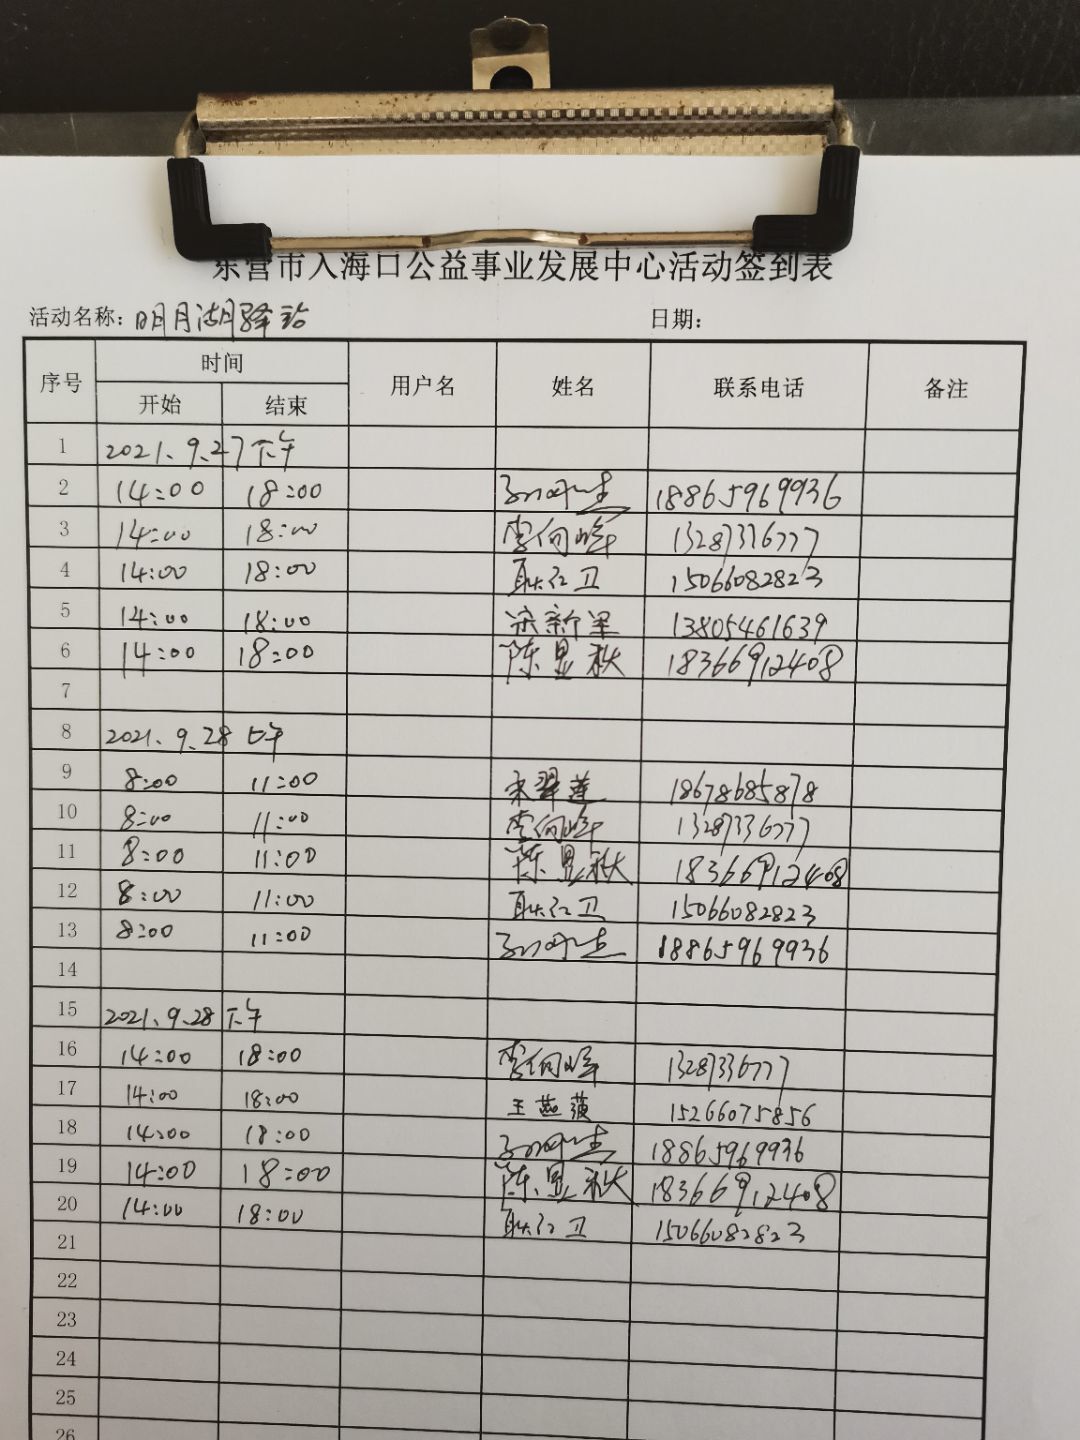 东营市入海口公益事业发展中心活动签到表
活动名称：明月湖驿站 日期：
序号 时间 用户名 姓名 联系电话 备注
开始 结束
1 2021、9.27下午
2 14:00 18:00 18865969936
3 14:00 18:00 李向峰 13287336777
4 14:00 18:00 耿红卫 15066082823
5 14:00 18:00 新军 13805461639
6 14:00 18:00 陈显秋 18366912408
7
8 2021.9.28 上午
9 8:00 11:00 宋翠莲 18678685878
10 8:00 11:00 李向峰 13287336777
11 8:00 11:00 陈显秋 18366912408
12 8:00 11:00 耿红卫 15066082823
13 8:00 11:00 18865969936
14
15 2021.9.28 下午
16 14:00 18:00 李向峰 13287336777
17 14:00 18:00 王燕 15266075856
18 14:00 18:00 18865969936
19 14:00 18:00 陈显秋 18366912408
20 14:00 18:00 耿红卫 15066082823
21
22
23
24
25
26